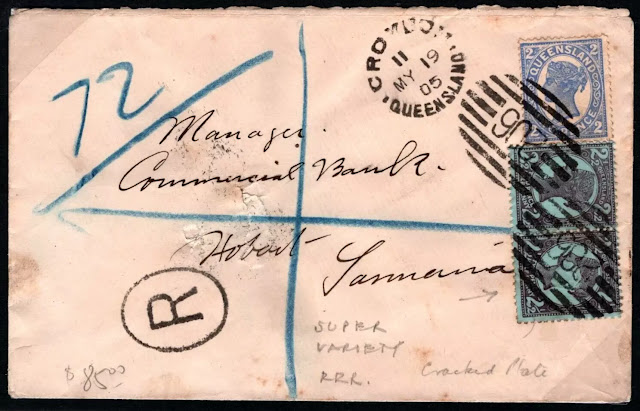 CROYDON
11
MY 19
05
QUEENSLAND
2 QUEENSLAND 2
2 2
72
Manager.
Commercial Bank.
Hobart
Tasmania
R
SUPER
VARIETY
RRR.
Cracked Plate
$ 85.00